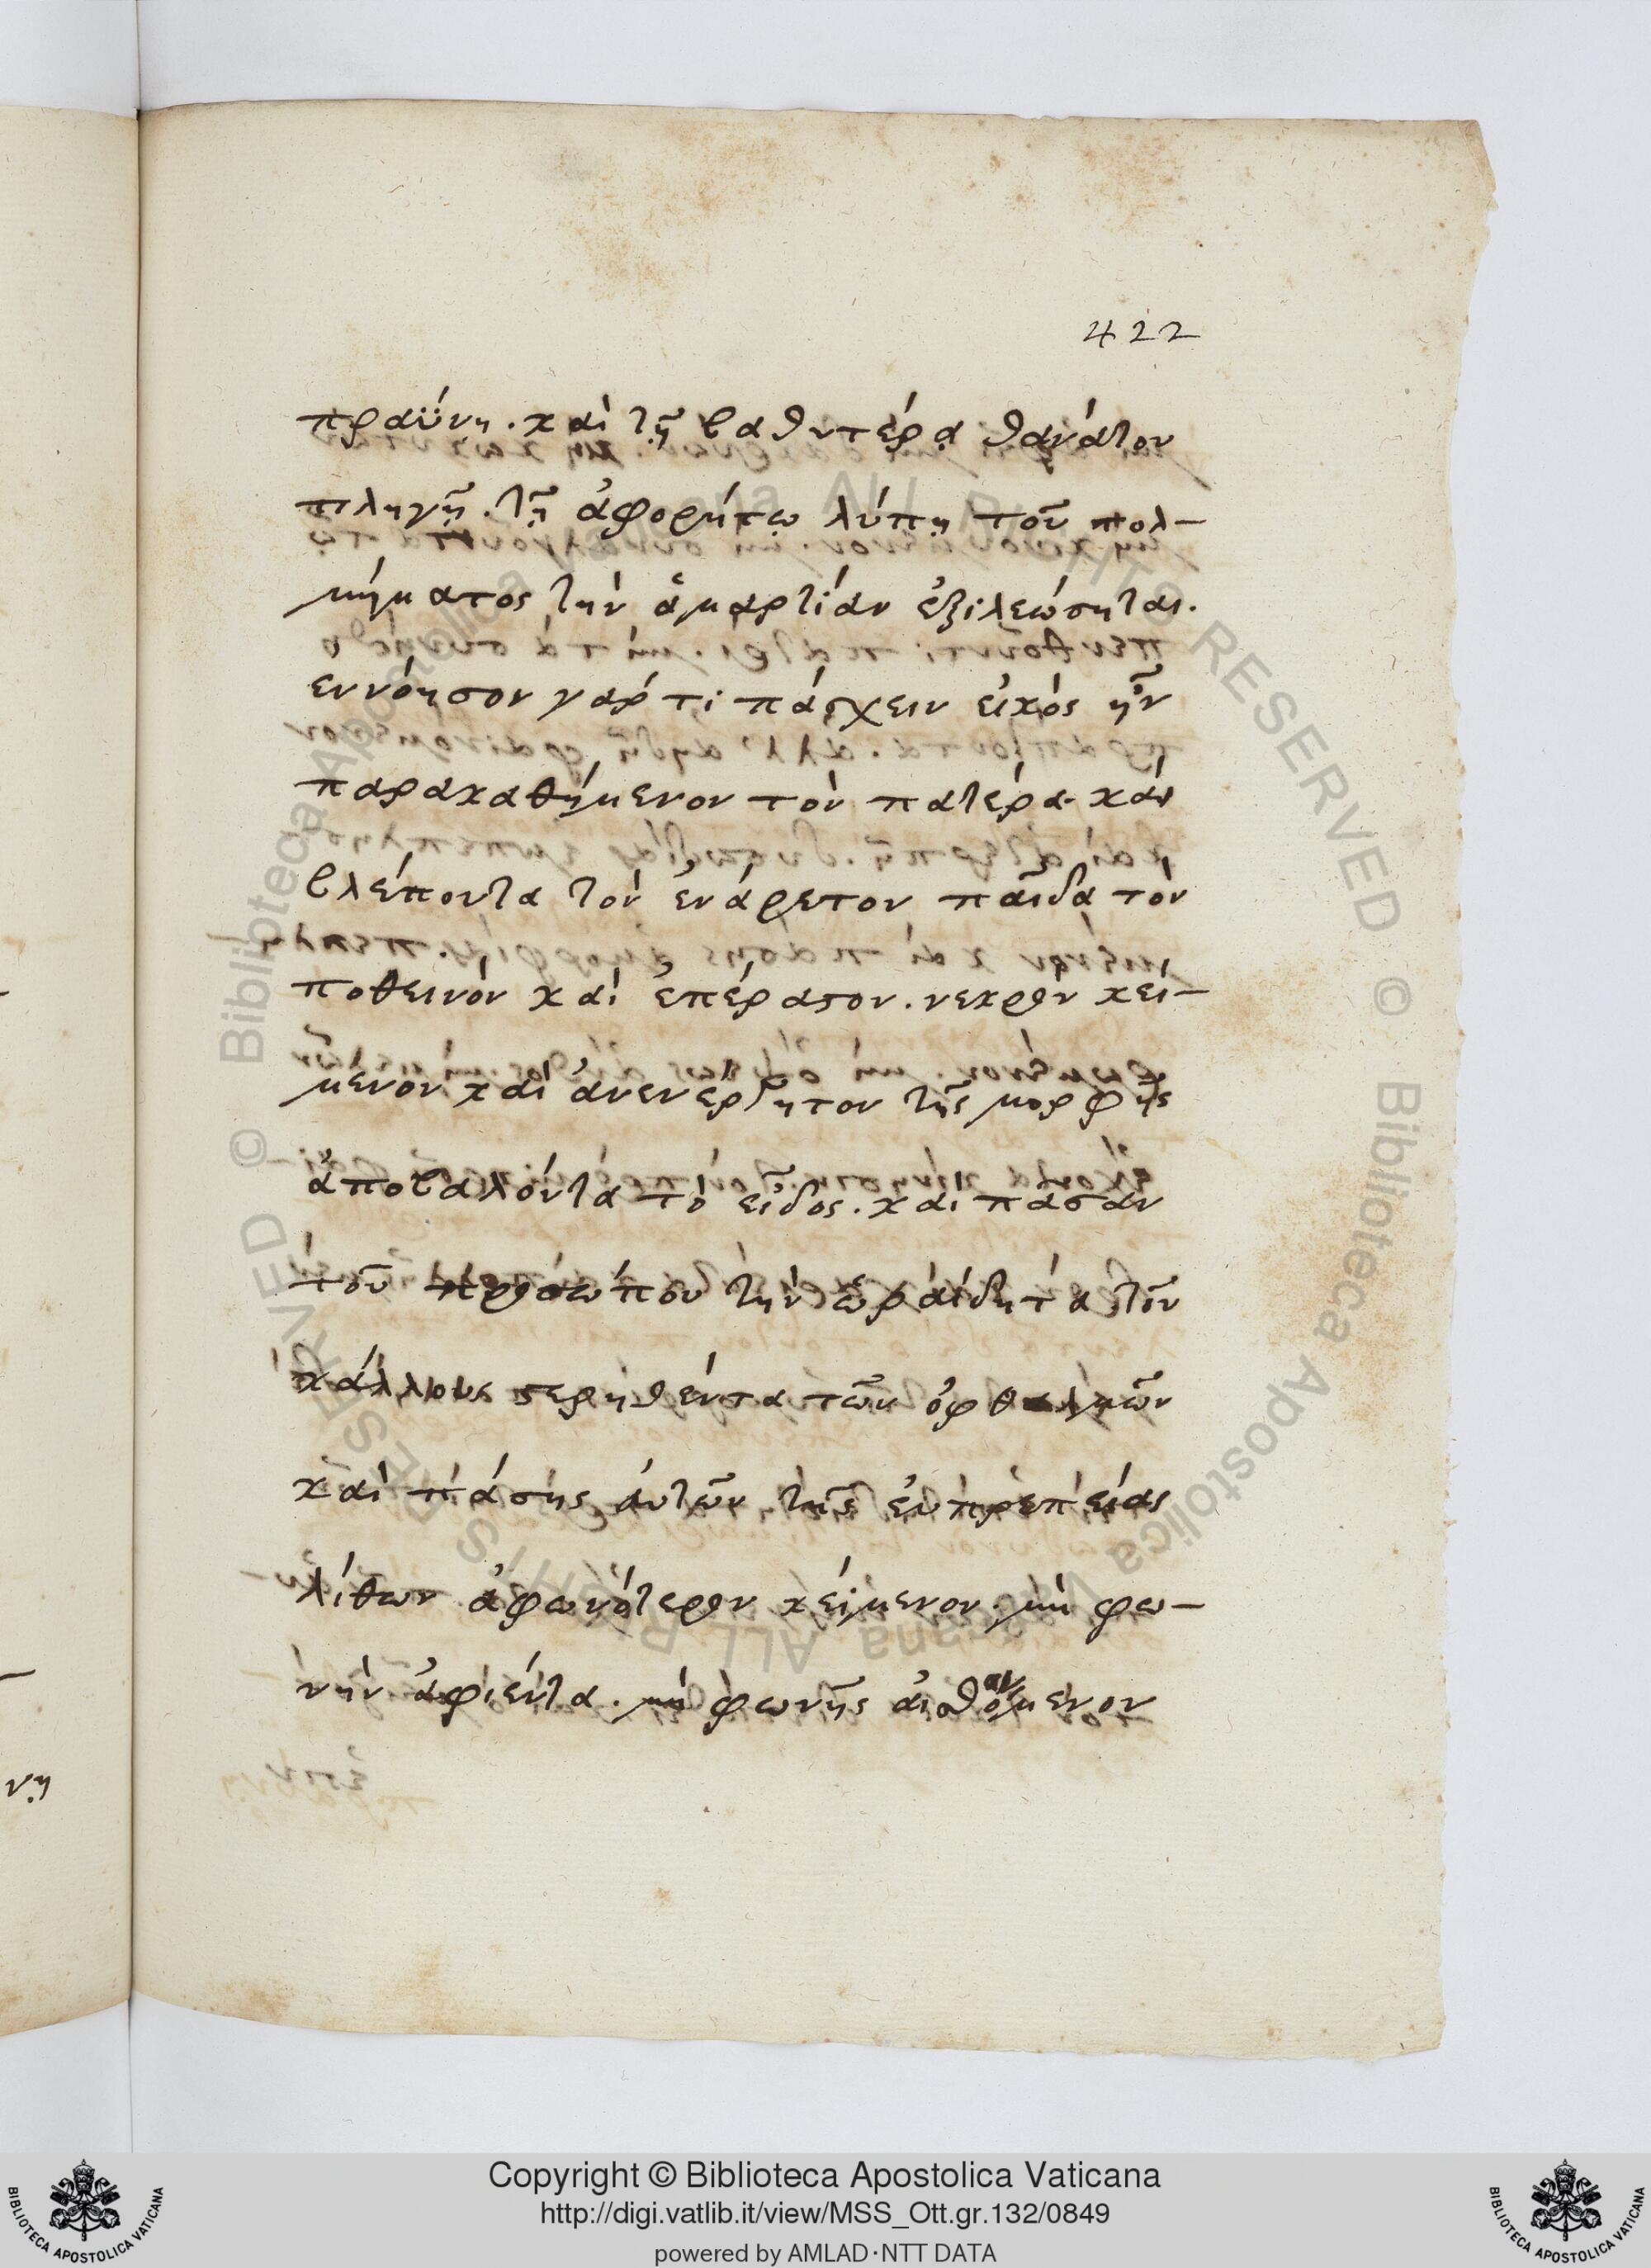 422
πραΰνῃ. καὶ τῇ βαθυτέρᾳ θανάτου
πληγῇ. τῇ ἀφορήτῳ λύπῃ τοῦ τολ-
μήματος τὴν ἁμαρτίαν ἐξιλεώσηται.
εννόησον γαρ τί πάσχειν εἰκὸς ἦν
παρακαθήμενον τὸν πατέρα. καὶ
βλέποντα τὸν ἐνάρετον παῖδα τὸν
ποθεινὸν καὶ ἐπέραστον. νεκρὸν κεί-
μενον καὶ ἀνενέργητον τῆς μορφῆς
ἀποβαλόντα τὸ εἶδος. καὶ πᾶσαν
τοῦ προσώπου τὴν ὡραιότητα τοῦ
κάλλους στερηθέντα τῶν ὀφθαλμῶν
καὶ πάσης αὐτῶν τῆς εὐπρεπείας
λίθων ἀφωνότερον κείμενον. μὴ φω-
νὴν ἀφιέντα. μὴ φωνῆς αἰσθόμενον
αν
νῃ
Copyright © Biblioteca Apostolica Vaticana
http://digi.vatlib.it/view/MSS_Ott.gr.132/0849
powered by AMLAD·NTT DATA
BIBLIOTECA APOSTOLICA VATICANA
BIBLIOTECA APOSTOLICA VATICANA
© Biblioteca Apostolica Vaticana ALL RIGHTS RESERVED © Biblioteca Apostolica Vaticana ALL RIGHTS RESERVED